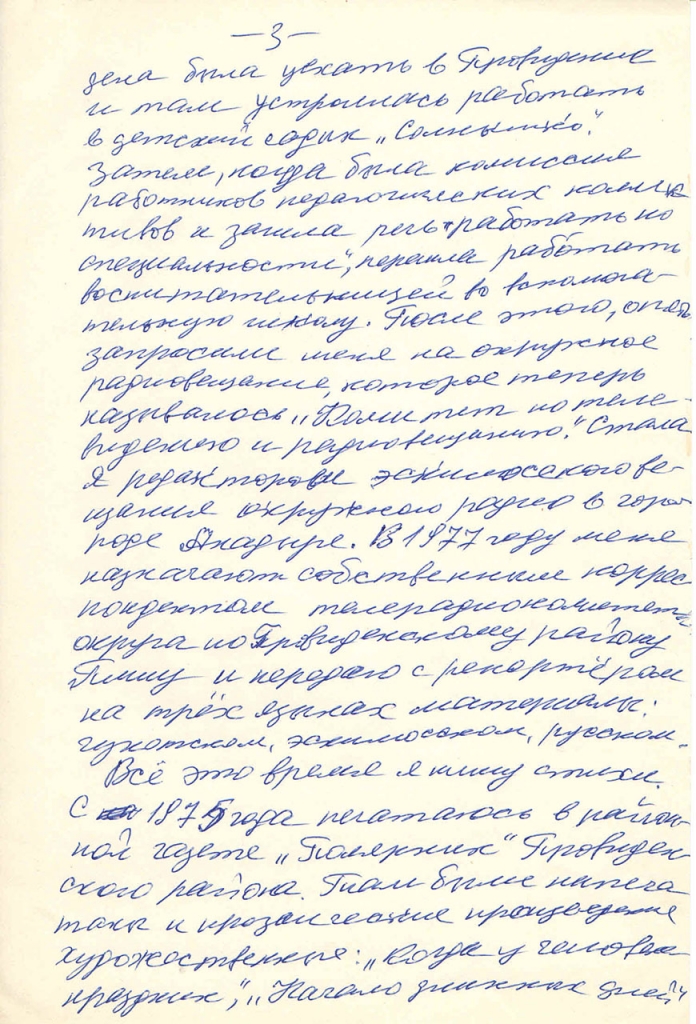 —3—
дела была уехать в Провидения
и там устроилась работать
в детский садик „Солнышко".
Затем, когда была комиссия
работников педагогических коллек
тивов и зашла речь „работать по
специальности", перешла работать
воспитательницей во вспомога-
тельную школу. После этого, опять
запросили меня на окружное
радиовещание, которое теперь
называлось „Комитет по теле-
видению и радиовещанию". Стала
я редактором эскимосского ве-
щания окружного радио в горо-
роде Анадыре. В 1977 году меня
назначают собственным коррес
пондентом телерадиокомитета
округа по Провиденскому району
Пишу и передаю с репортёром
на трёх языках материалы:
чукотском, эскимосском, русском.
Всё это время я пишу стихи.
С 1975 года печатаюсь в район-
ной газете „Полярник" Провиден-
ского района. Там были напеча
таны и прозаические произведения
художественные: „Когда у человека
праздник", „Начало зимних дней"